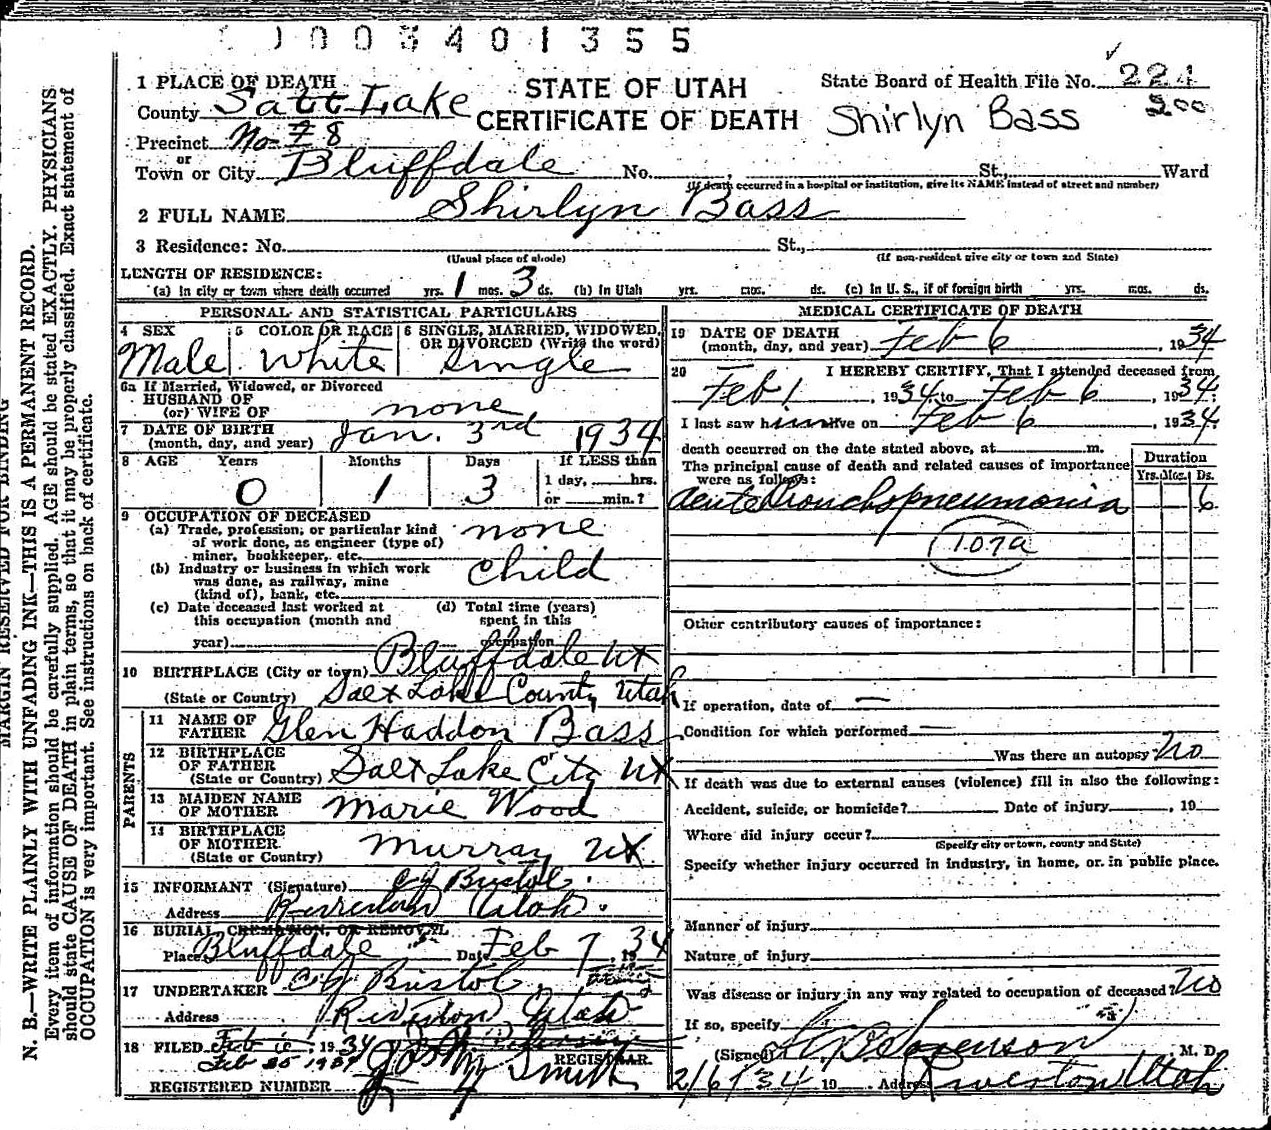 0003401355
1 PLACE OF DEATH
STATE OF UTAH
CERTIFICATE OF DEATH
State Board of Health File No. 224
200
County Salt Lake
Shirlyn Bass
Precinct No 8
or
Town or City Bluffdale No. , St., Ward
(If death occurred in a hospital or institution, give its NAME instead of street and number)
2 FULL NAME Shirlyn Bass
3 Residence: No. St.,
(Usual place of abode) (If non-resident give city or town and State)
LENGTH OF RESIDENCE:
(a) In city or town where death occurred yrs. 1 mos. 3 ds. (b) In Utah yrs. mos. ds. (c) In U. S., if of foreign birth yrs. mos. ds.
PERSONAL AND STATISTICAL PARTICULARS
4 SEX 5 COLOR OR RACE 6 SINGLE, MARRIED, WIDOWED, OR DIVORCED (Write the word)
Male White Single
6a If Married, Widowed, or Divorced
HUSBAND OF
(or) WIFE OF none
7 DATE OF BIRTH
(month, day, and year) Jan. 3rd 1934
8 AGE Years Months Days If LESS than
1 day, hrs.
0 1 3 or min.?
9 OCCUPATION OF DECEASED
(a) Trade, profession, or particular kind
of work done, as engineer (type of)
miner, bookkeeper, etc. none
(b) Industry or business in which work
was done, as railway, mine
(kind of), bank, etc. child
(c) Date deceased last worked at
this occupation (month and
year)
(d) Total time (years)
spent in this
occupation
10 BIRTHPLACE (City or town) Bluffdale Ut
(State or Country) Salt Lake County Utah
PARENTS
11 NAME OF
FATHER Glen Haddon Bass
12 BIRTHPLACE
OF FATHER
(State or Country) Salt Lake City Ut
13 MAIDEN NAME
OF MOTHER Marie Wood
14 BIRTHPLACE
OF MOTHER
(State or Country) Murray Ut.
15 INFORMANT (Signature) Bristol
Address Riverton Utah.
16 BURIAL, CREMATION, OR REMOVAL
Place Bluffdale Date Feb 7, 1934
17 UNDERTAKER Bristol
Address Riverton Utah
18 FILED Feb 10 1934
Feb 25 1934
Smith REGISTRAR.
REGISTERED NUMBER 4
MEDICAL CERTIFICATE OF DEATH
19 DATE OF DEATH
(month, day, and year) Feb 6, 1934
20 I HEREBY CERTIFY, That I attended deceased from
Feb 1, 1934 to Feb 6, 1934.
I last saw him alive on Feb 6, 1934
death occurred on the date stated above, at m.
The principal cause of death and related causes of importance
were as follows:
Duration
Yrs. Mos. Ds.
Acute bronchopneumonia 6
107a
Other contributory causes of importance:
If operation, date of —
Condition for which performed —
Was there an autopsy No
If death was due to external causes (violence) fill in also the following:
Accident, suicide, or homicide? Date of injury , 19
Where did injury occur?
(Specify city or town, county and State)
Specify whether injury occurred in industry, in home, or in public place.
Manner of injury
Nature of injury
Was disease or injury in any way related to occupation of deceased? No
If so, specify
(Signed) Sorenson M. D.
2/6/34 19 Address Riverton Utah
MARGIN RESERVED FOR BINDING
N. B.—WRITE PLAINLY WITH UNFADING INK—THIS IS A PERMANENT RECORD.
Every item of information should be carefully supplied. AGE should be stated EXACTLY. PHYSICIANS
should state CAUSE OF DEATH in plain terms, so that it may be properly classified. Exact statement of
OCCUPATION is very important. See instructions on back of certificate.